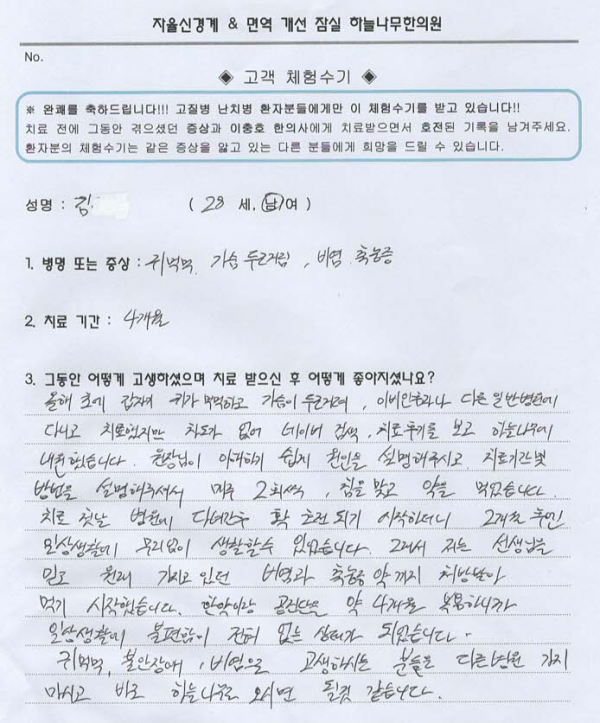 자율신경계 & 면역 개선 잠실 하늘나무한의원
No.
◈ 고객 체험수기 ◈
※ 완쾌를 축하드립니다!!! 고질병 난치병 환자분들에게만 이 체험수기를 받고 있습니다!!
치료 전에 그동안 겪으셨던 증상과 이충호 한의사에게 치료받으면서 호전된 기록을 남겨주세요.
환자분의 체험수기는 같은 증상을 앓고 있는 다른 분들에게 희망을 드릴 수 있습니다.
성명 : 김 ( 28 세, 남/여 )
1. 병명 또는 증상 : 귀먹먹, 가슴 두근거림, 비염 축농증
2. 치료 기간 : 4개월
3. 그동안 어떻게 고생하셨으며 치료 받으신 후 어떻게 좋아지셨나요?
올해 초에 갑자기 귀가 먹먹하고 가슴이 두근거려, 이비인후과나 다른 일반병원에
다니고 치료했지만 차도가 없어 네이버 검색, 치료후기를 보고 하늘나무에
내원했습니다. 원장님이 이해하기 쉽게 원인을 설명해주시고, 치료기간 및
방법을 설명해주셔서 매주 2회씩, 침을 맞고 약을 먹었습니다.
치료 첫날 병원에 다녀간후 확 호전 되기 시작하더니 2개월 후엔
일상생활에 무리없이 생활할수 있었습니다. 그래서 저는 선생님을
믿고 원래 가지고 있던 비염과 축농증 약까지 처방받아
먹기 시작했습니다. 한약이랑 공진단을 약 4개월 복용하니까
일상생활에 불편함이 전혀 없는 상태가 되었습니다.
귀먹먹, 불안장애, 비염으로 고생하시는 분들은 다른병원 가지
마시고 바로 하늘나무로 오시면 될것 같습니다.